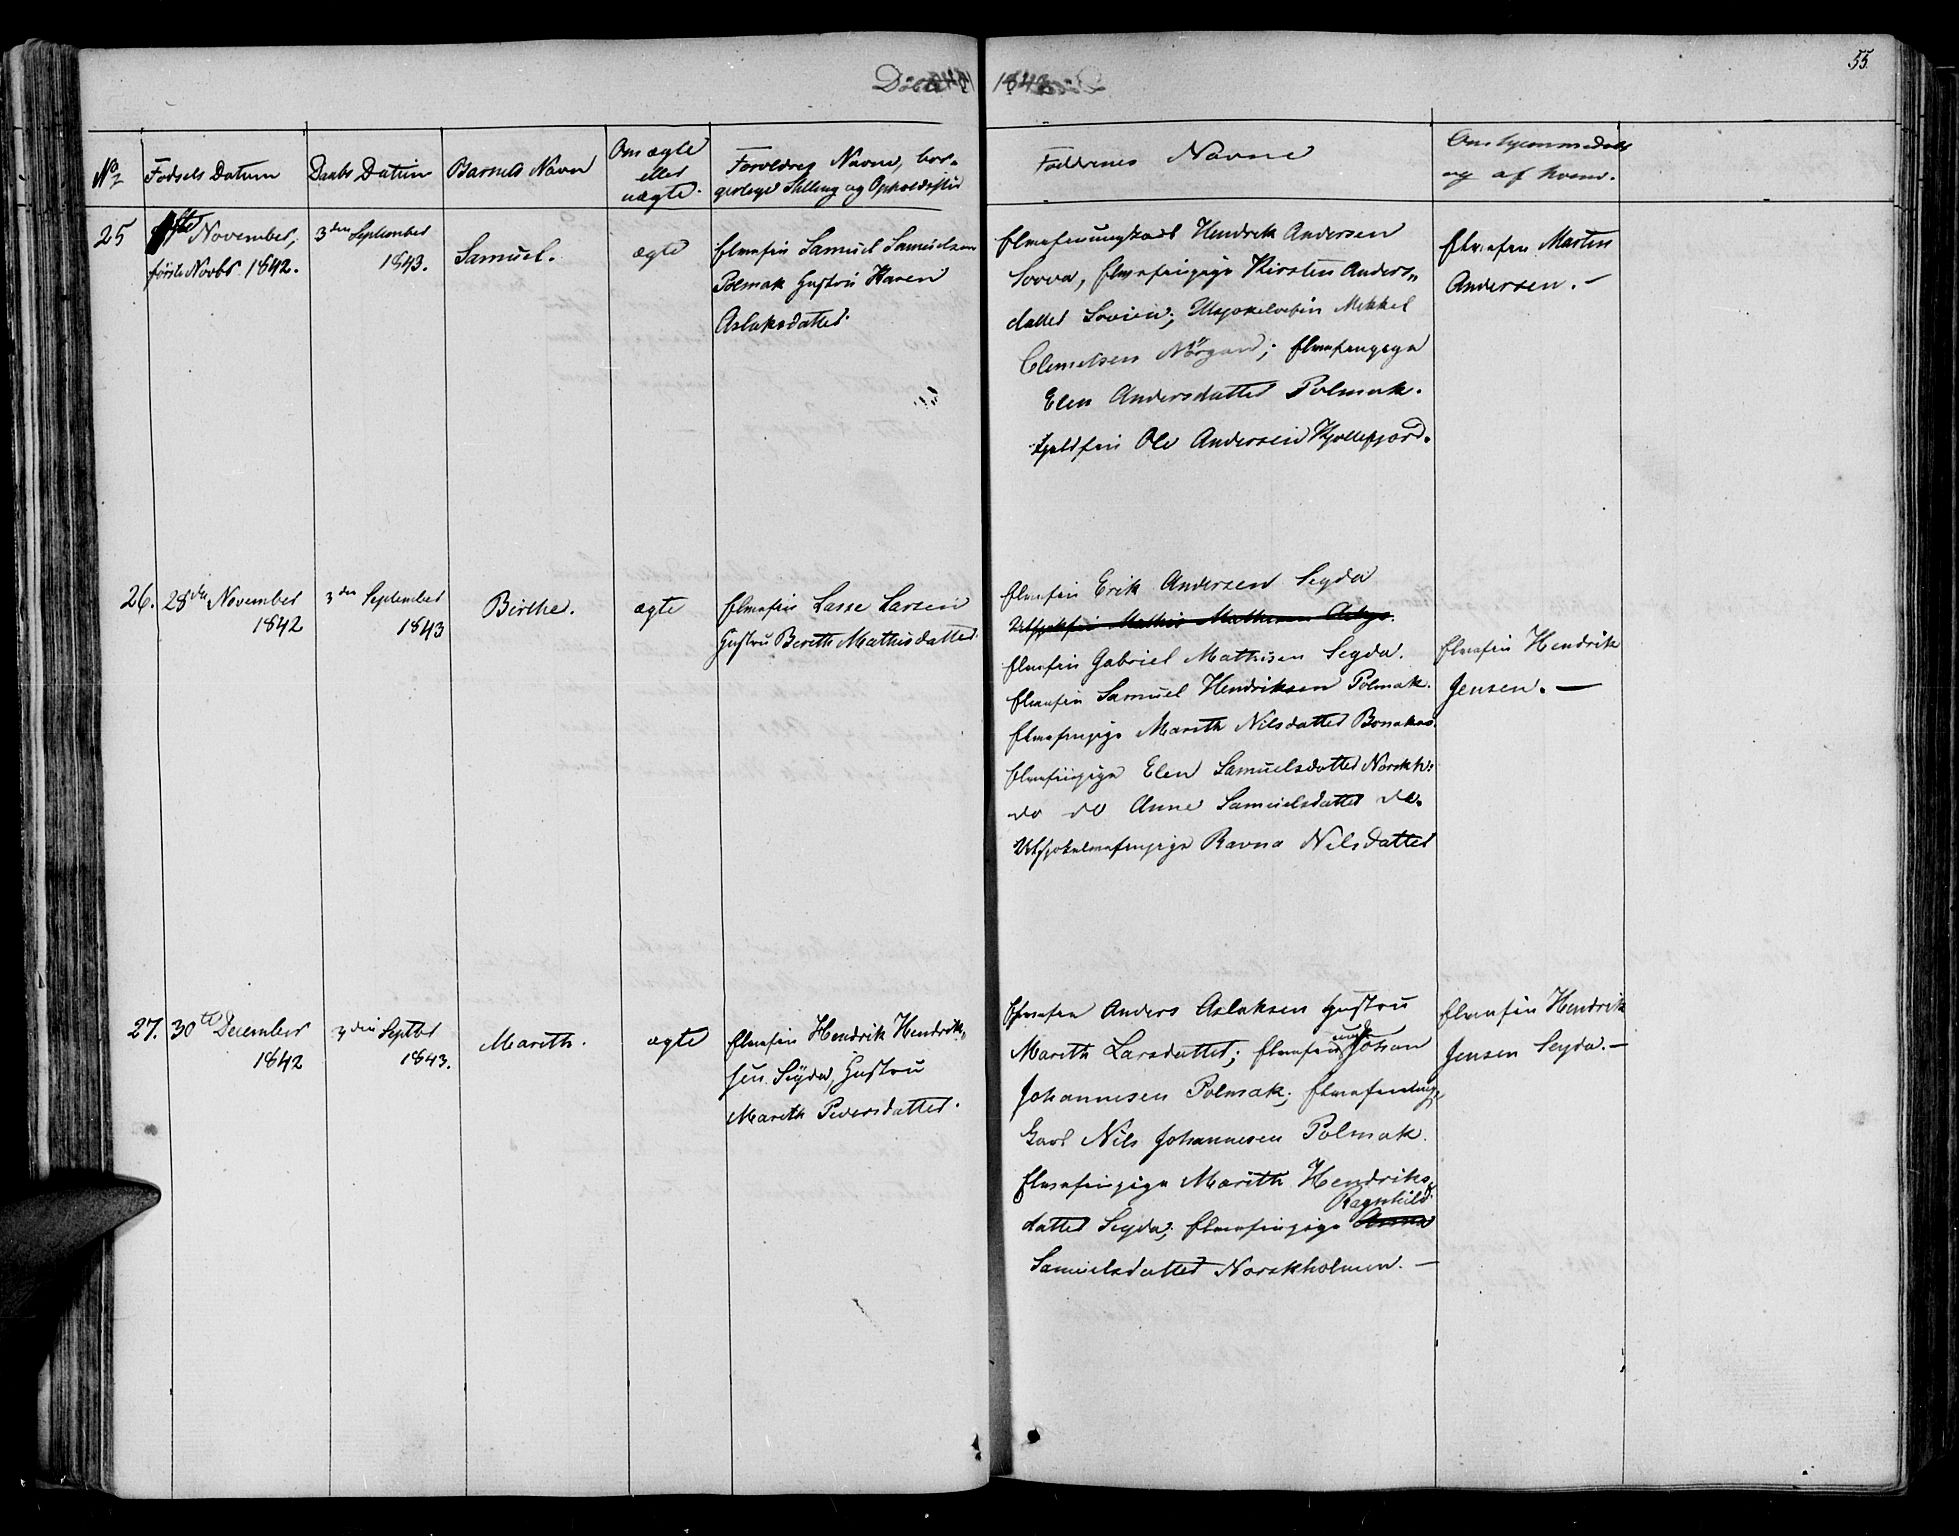 1843
55.
No
Fødsels Datum
Daabs Datum
Barnets Navn
Om ægte
eller
uægte.
Forældres Navne, bor-
gerlige Stilling og Opholdssted
Faddernes Navne
Om hjemmedøbt
og af hvem.
25
1ste November,
første Novbr. 1842.
3den September
1843.
Samuel.
ægte
Elvefin Samuel Samuelsen
Polmak Hustru Karen
Aslaksdatter.
Hendrik Andersen
Sovva, Elvefinpige Kirsten Anders-
datter Mikkel
Clemetsen Nørgaard; Elvefinpige
Elen Andersdatter Polmak.
Fjeldfin Ole Andersen Kjøllefjord.
Elvefin Martin
Andersen. -
26.
28de November
1842
3den September
1843
Birthe.
ægte
Elvefin Lasse Larsen
Hustru Bereth Mathisdatter.
Elvefin Erik Andersen Seyda
Elvefin Gabriel Mathisen Seyda.
Elvefin Samuel Hendriksen Polmak.
Elvefinpige Mareth Nilsdatter Bonakas.
Elvefinpige Elen Samuelsdatter Norskh:
do do Anne Samuelsdatter do.
Utsjokelvefinpige Ravna Nilsdatter
Elvefin Hendrik
Jensen. -
27.
30te December
1842
3den Septbr
1843.
Mareth.
ægte
Elvefin Hendrik Hendrik-
sen Seyda, Hustru
Mareth Peersdatter.
Elvefin Anders Aslaksen Hustru
Mareth Larsdatter; Elvefin ungk Johan
Johannesen Polmak; Elvefinung-
karl Nils Johannesen Polmak.
Elvefinpige Mareth Hendriks-
Ragnhild
datter Seyda; Elvefinpige Anna
Samuelsdatter Norskholmen. -
Elvefin Hendrik
Jensen Seyda. -